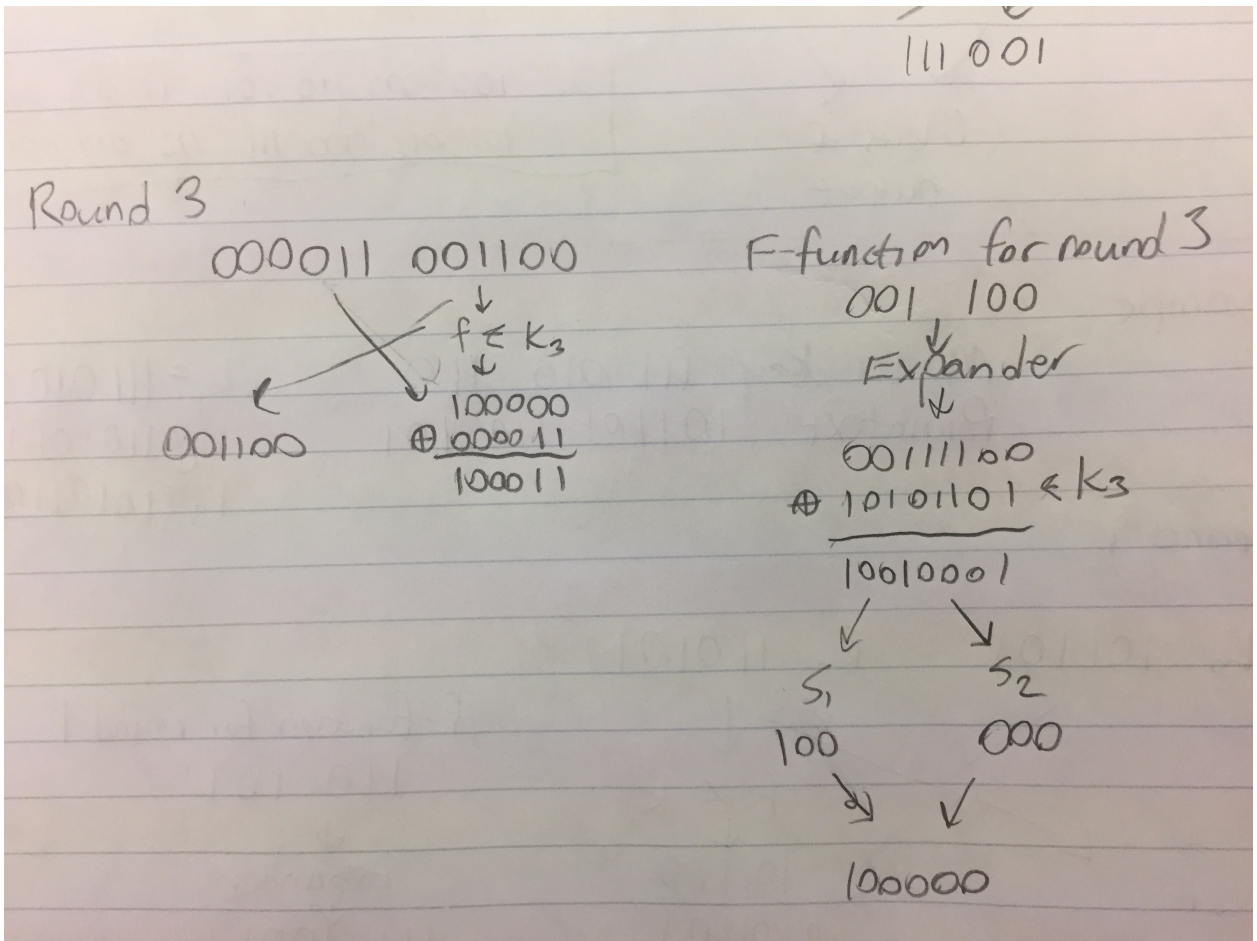 111 001
Round 3
000011 001100
f ← K3
100000
001100
⊕ 000011
100011
F-function for round 3
001 100
Expander
00111100
⊕ 10101101 ← K3
10010001
S1 S2
100 000
100000